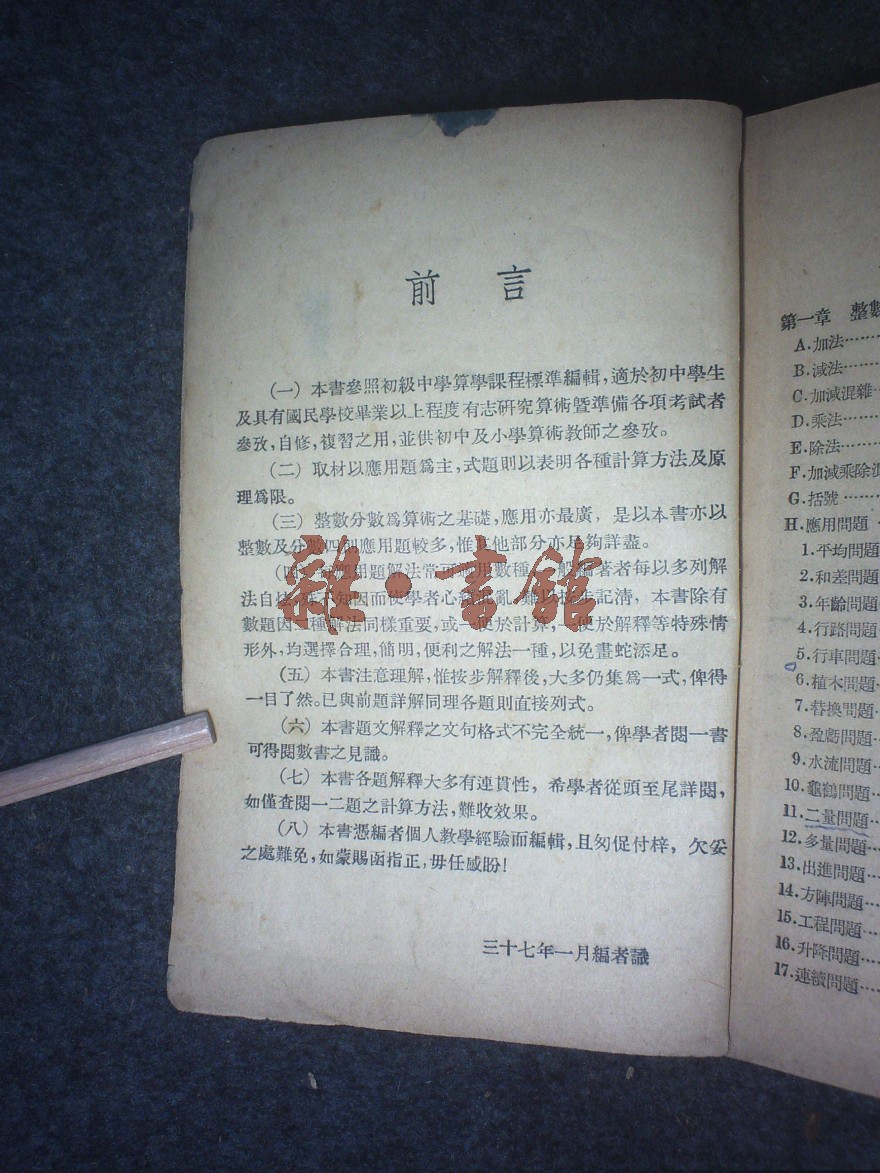 前言
(一) 本書參照初級中學算學課程標準編輯，適於初中學生
及具有國民學校畢業以上程度有志研究算術暨準備各項考試者
參攷，自修，複習之用，並供初中及小學算術教師之參攷。
(二) 取材以應用題爲主，式題則以表明各種計算方法及原
理爲限。
(三) 整數分數爲算術之基礎，應用亦最廣，是以本書亦以
整數及分數四則應用題較多，惟其他部分亦足夠詳盡。
(四) 應用題解法常可適用數種，般編著者每以多列解
法自炫，殊不知因而使學者心緒混亂，難以逐步記淸，本書除有
數題因二種解法同樣重要，或一便於計算，一便於解釋等特殊情
形外，均選擇合理，簡明，便利之解法一種，以免畫蛇添足。
(五) 本書注意理解，惟按步解釋後，大多仍集爲一式，俾得
一目了然。已與前題詳解同理各題則直接列式。
(六) 本書題文解釋之文句格式不完全統一，俾學者閱一書
可得閱數書之見識。
(七) 本書各題解釋大多有連貫性，希學者從頭至尾詳閱，
如僅查閱一二題之計算方法，難收效果。
(八) 本書憑編者個人教學經驗而編輯，且匆促付梓，欠妥
之處難免，如蒙賜函指正，毋任感盼！
三十七年一月編者識
雜·書館
第一章 整數
A.加法……
B.減法……
C.加減混雜……
D.乘法……
E.除法……
F.加減乘除混
G.括號……
H.應用問題
1.平均問題
2.和差問題
3.年齡問題
4.行路問題
5.行車問題
6.植木問題
7.替換問題
8.盈虧問題
9.水流問題
10.龜鶴問題
11.二量問題
12.多量問題
13.出進問題
14.方陣問題
15.工程問題
16.升降問題
17.連續問題